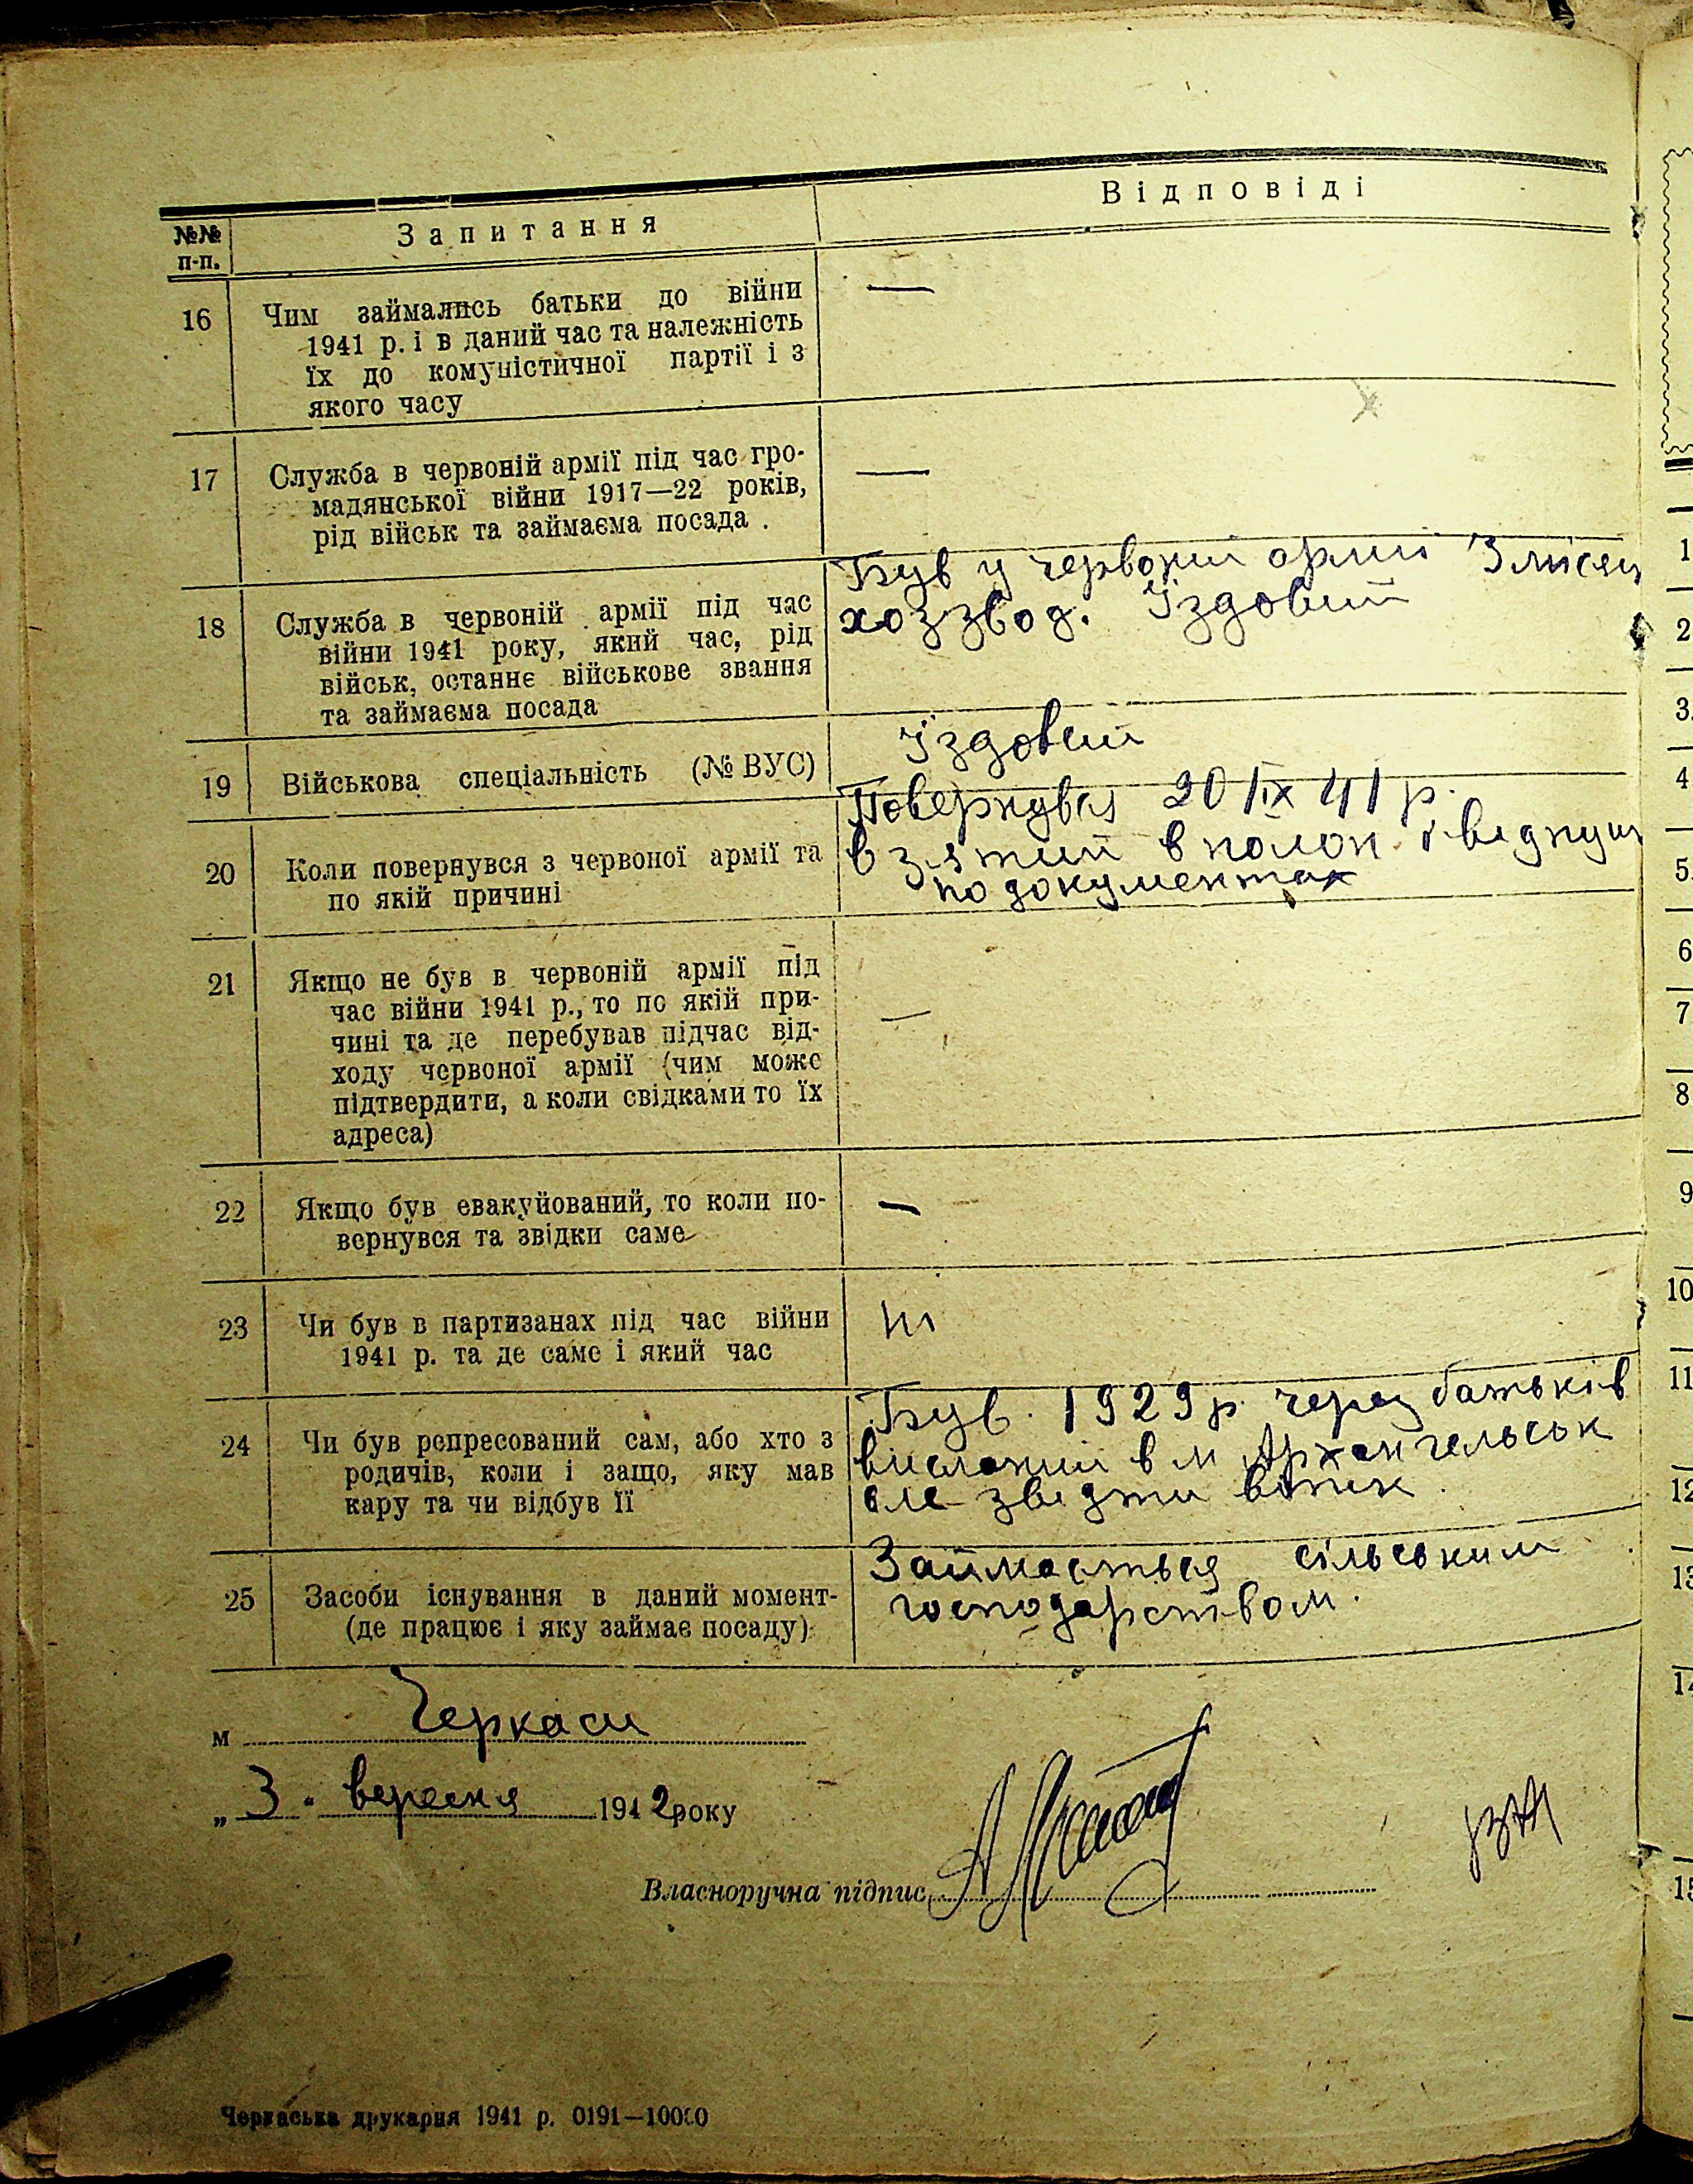 №№
п-п.
Запитання
Відповіді
16
Чим займались батьки до війни
1941 р. і в даний час та належність
їх до комуністичної партії і з
якого часу
—
17
Служба в червоній армії під час гро-
мадянської війни 1917—22 років,
рід військ та займаєма посада .
—
18
Служба в червоній армії під час
війни 1941 року, який час, рід
військ, останнє військове звання
та займаєма посада
Був у червоній армії 3 місец
хоззвод. Їздовий
19
Військова спеціальність (№ ВУС)
Їздовий
20
Коли повернувся з червоної армії та
по якій причині
Повернувся 20/ІХ 41 р.
взятий в полон і відпущ
по документах
21
Якщо не був в червоній армії під
час війни 1941 р., то по якій при-
чині та де перебував підчас від-
ходу червоної армії (чим може
підтвердити, а коли свідками то їх
адреса)
—
22
Якщо був евакуйований, то коли по-
вернувся та звідки саме
—
23
Чи був в партизанах під час війни
1941 р. та де саме і який час
ні
24
Чи був репресований сам, або хто з
родичів, коли і защо, яку мав
кару та чи відбув її
Був. 1929 р. через батьків
висланий в м Архангельськ
але звідти втік.
25
Засоби існування в даний момент-
(де працює і яку займає посаду)
Займається сільським
господарством.
м Черкаси
„ 3 " вересня 1942 року
Власноручна підпис
Черкаська друкарня 1941 р. 0191—10000
1
2
3.
4
5.
6
7.
8
9
10
11
12
13
14
15